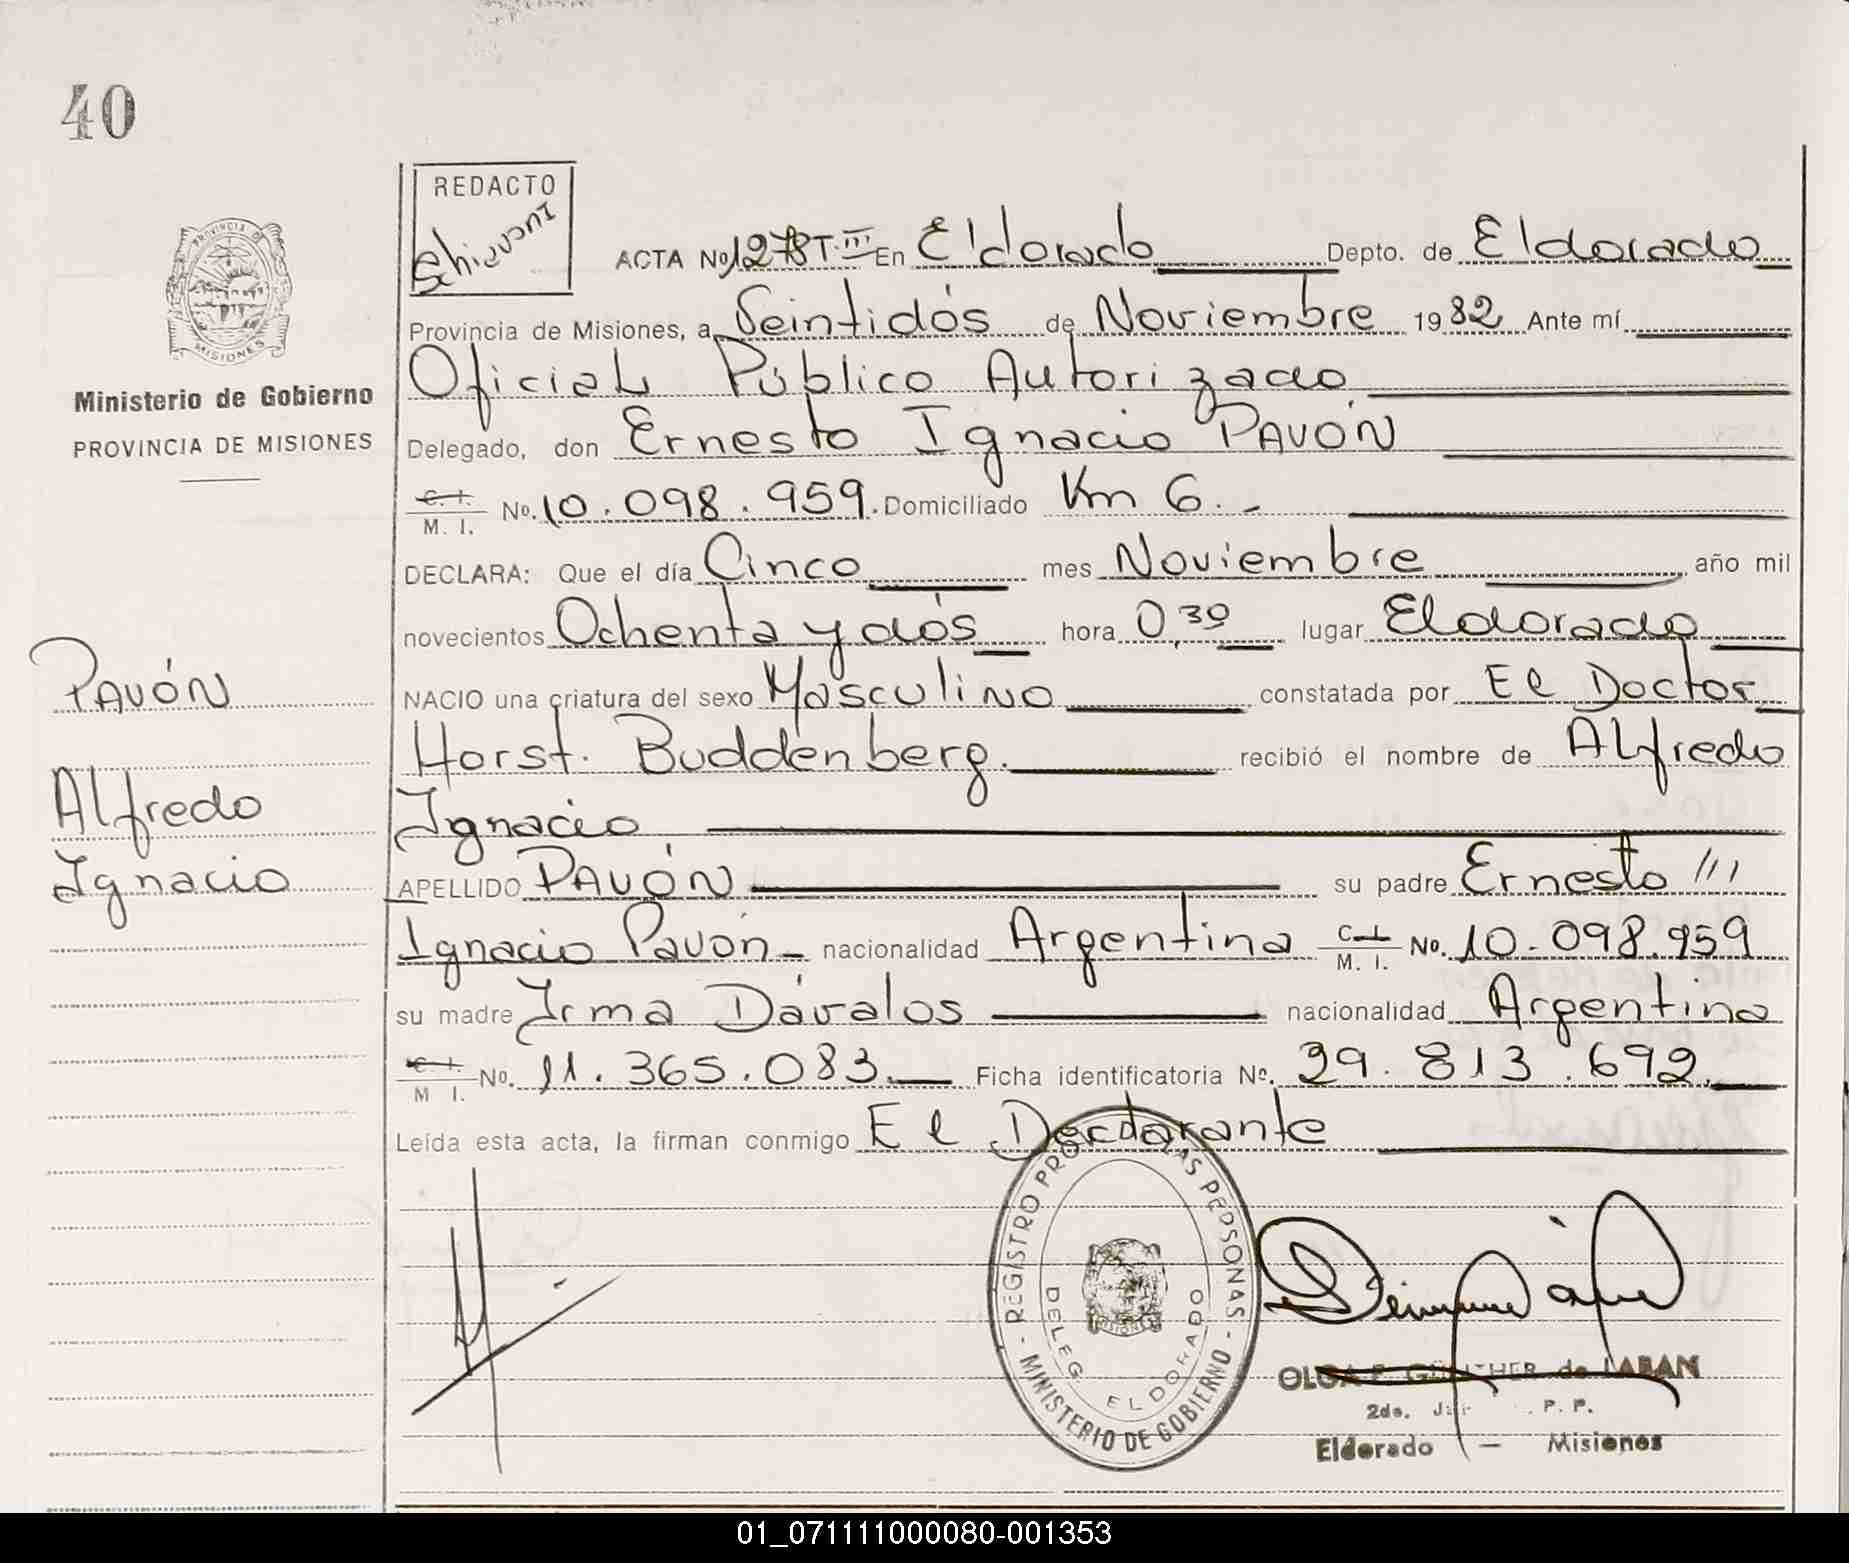 40
REDACTO
Schiavoni
PROVINCIA DE
MISIONES
Ministerio de Gobierno
PROVINCIA DE MISIONES
ACTA No 1278 T. III En Eldorado Depto. de Eldorado
Provincia de Misiones, a Veintidós de Noviembre 1982 Ante mí
Oficial Público Autorizado
Delegado, don Ernesto Ignacio PAVÓN
C. I.
M. I. No. 10.098.959. Domiciliado Km 6.-
DECLARA: Que el día Cinco mes Noviembre año mil
novecientos Ochenta y dós hora 0,30 lugar Eldorado
NACIO una criatura del sexo Masculino constatada por El Doctor
Horst. Buddenberg. recibió el nombre de Alfredo
Ignacio
APELLIDO PAVÓN su padre Ernesto ///
Ignacio Pavón - nacionalidad Argentina C. I.
M. I. No. 10.098.959
su madre Irma Dávalos nacionalidad Argentina
C. I.
M I. No. 11.365.083. Ficha identificatoria No. 29.813.692.
Leída esta acta, la firman conmigo El Declarante
PAVÓN
Alfredo
Ignacio
- REGISTRO PRO LAS PERSONAS -
MINISTERIO DE GOBIERNO
DELEG. ELDORADO
OLGA E. GÜNTHER de LABAN
2do. P. P.
Eldorado — Misiones
01_071111000080-001353